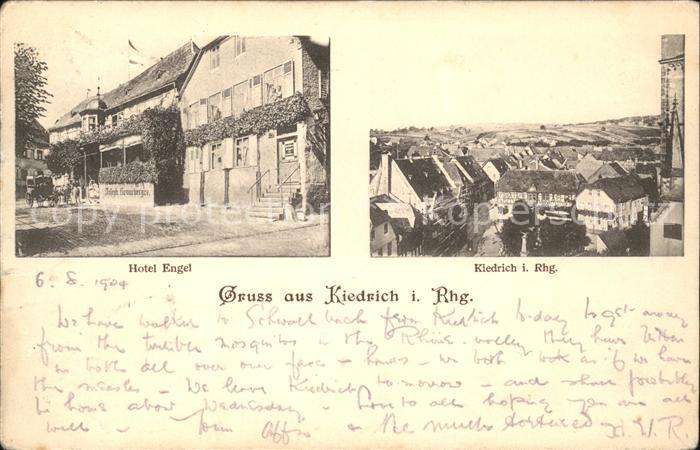 Hotel Engel
Kiedrich i. Rhg.
6. 8. 1904
Gruss aus Kiedrich i. Rhg.
We have walked to Schwalbach from Kiedrich to-day to get away
from the terrible mosquitos in the Rhine valley they have bitten
us both all over our face & hands – we both look as if we have
the measles – We leave Kiedrich to-morrow – and shall probably
be home about Wednesday – Love to all hoping you are all
well – Your Affte & the much tortured H. V. R.
copyright